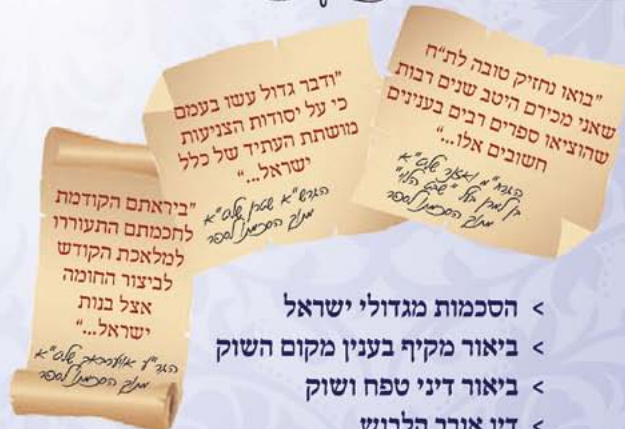 "בואו נחזיק טובה לת"ח
שאני מכירם היטב שנים רבות
שהוציאו ספרים רבים בענינים
חשובים אלו..."
הגרח"מ ואזנר שליט"א
בן למרן בעל "שבט הלוי"
מתוך הסכמתו לספר
"ודבר גדול עשו בעמם
כי על יסודות הצניעות
מושתת העתיד של כלל
ישראל..."
הגרש"א שטרן שליט"א
מתוך הסכמתו לספר
"ביראתם הקודמת
לחכמתם התעוררו
למלאכת הקודש
לביצור החומה
אצל בנות
ישראל..."
הגר"ע אויערבאך שליט"א
מתוך הסכמתו לספר
> הסכמות מגדולי ישראל
> ביאור מקיף בענין מקום השוק
> ביאור דיני טפח ושוק
> דין אורך הלבוש